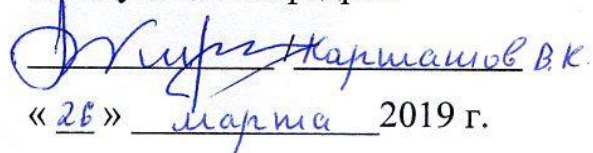 /Карташов В.К.
« 26 » марта 2019 г.